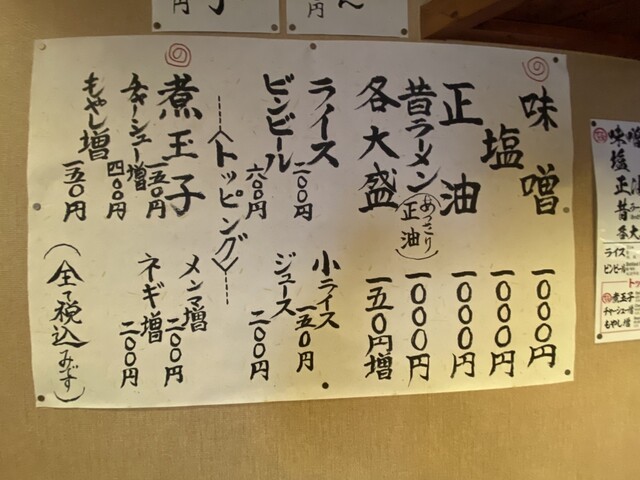 味噌 一〇〇〇円
塩 一〇〇〇円
正油 一〇〇〇円
昔ラーメン(あっさり正油) 一〇〇〇円
各大盛 一五〇円増
ライス 二〇〇円
小ライス 一五〇円
ビンビール 六〇〇円
ジュース 二〇〇円
〈トッピング〉
の
煮玉子 一五〇円
メンマ増 二〇〇円
チャーシュー増 四〇〇円
ネギ増 二〇〇円
もやし増 一五〇円
(全て税込みです)
円
円
味噌
塩
正油
昔
各大
ライス
ビンビール
トッ
煮玉子
チャーシュー増
もやし増